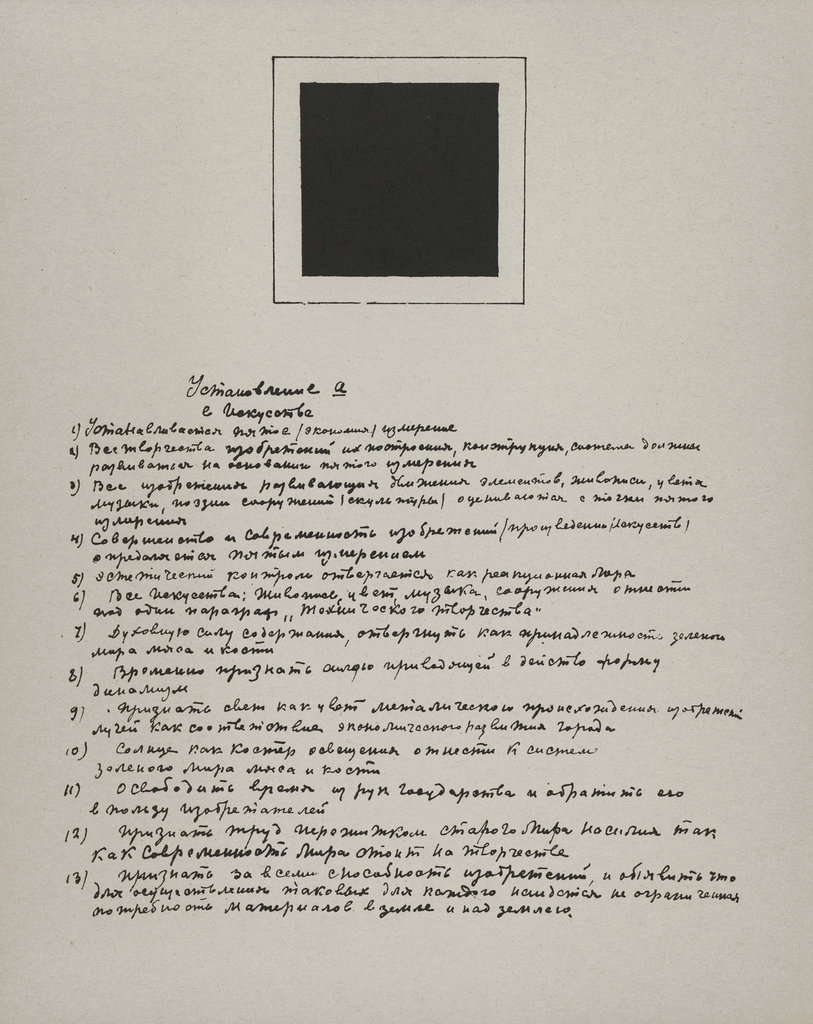 Установление а
в Искусстве
1) Устанавливается пятое /экономия/ измерение
2) Все творчества изобретений их построения, конструкция, система должны
развиваться на основании пятого измерения
3) Все изобретения развивающия движения элементов, живописи, цвета
музыки, поэзии сооружений /скульптуры/ оцениваются с точки пятого
измерения
4) Совершенство и современность изобретений /произведени искусств/
определяется пятым измерением
5) Эстетический контроль отвергается как реакционная мера
6) Все Искусства: Живопись, цвет, музыка, сооружения отнести
под один параграф „Технического творчества"
7) Духовную силу содержания, отвергнуть как принадлежность зеленого
мира мяса и кости
8) Временно признать приводящей в действо форму
динамизм
9) Признать свет как цвет металического происхождения изобретений
лучей как соответствие экономического развития города
10) Солнце как костер освещения отнести к системе
зеленого мира мяса и кости
11) Освободить время из рук государства и обратить его
в пользу изобретателей
12) Признать труд пережитком старого мира насилия так
как современность мира стоит на творчестве
13) Признать за всеми способность изобретений, и объявить что
для осуществления таковых для каждого неограниченная
потребность материалов в земле и над землею.